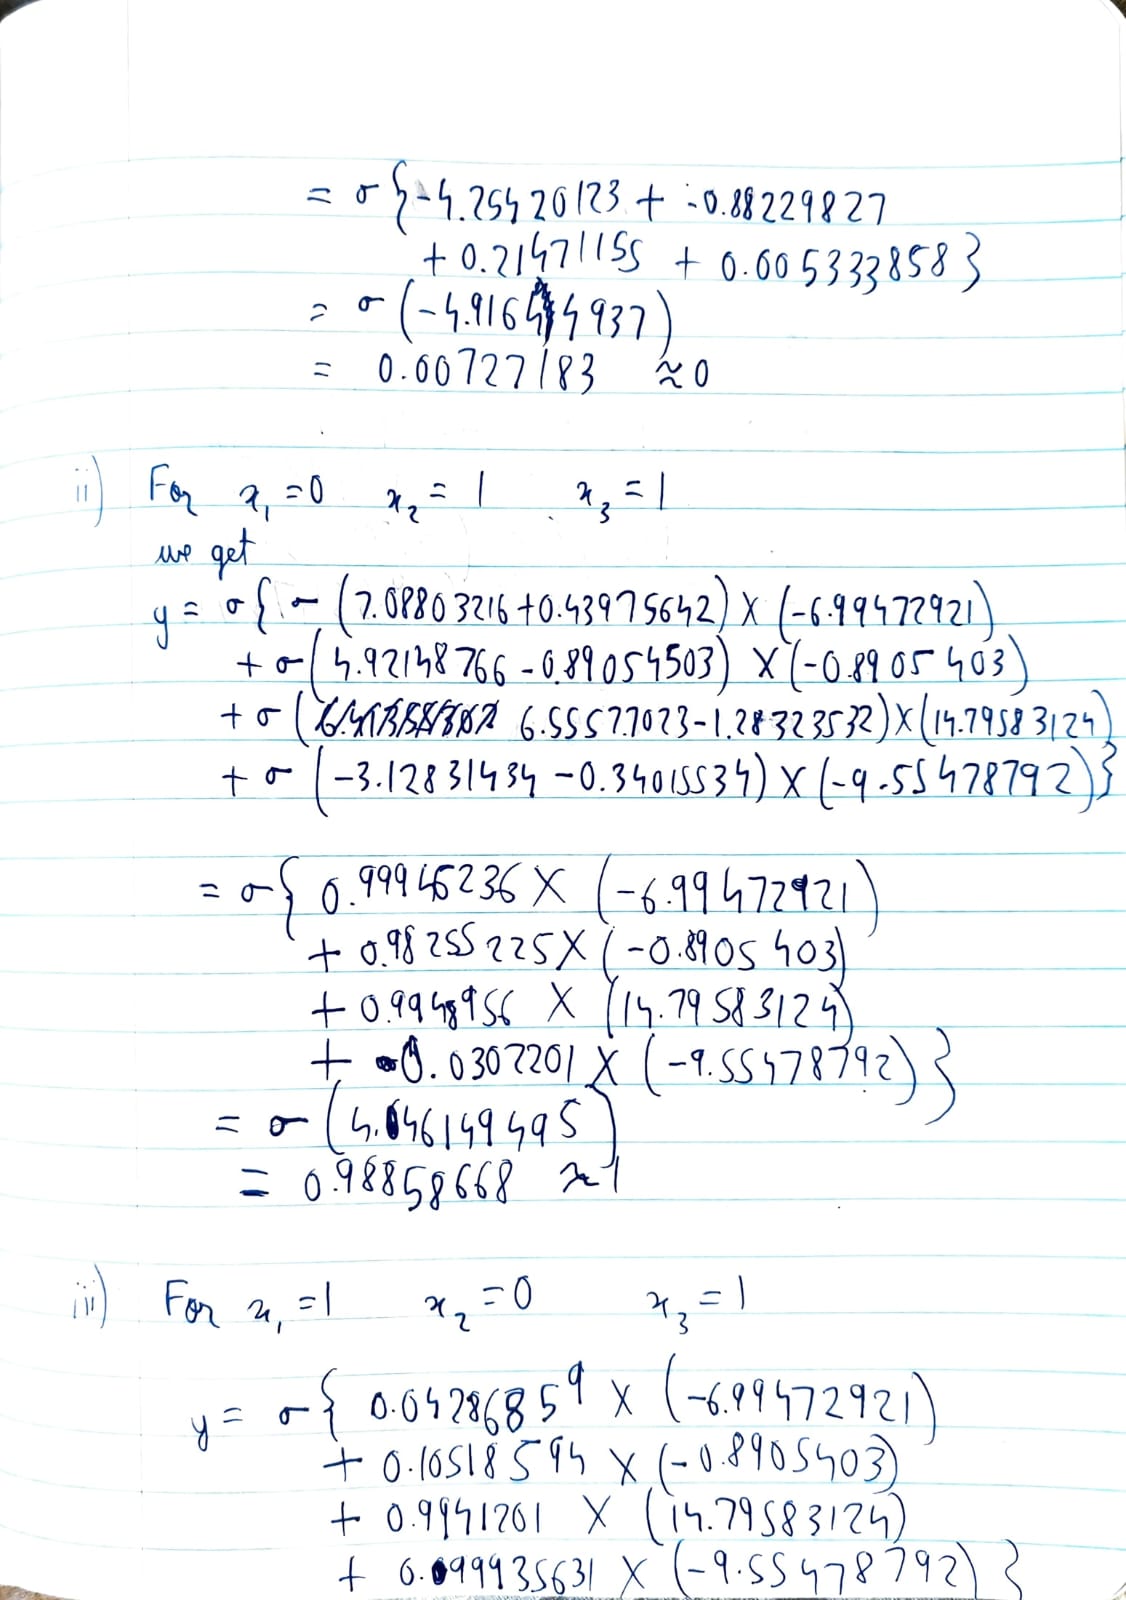 = σ {-4.25420123 + -0.88229827
+ 0.21471155 + 0.005333858}
= σ (-4.916454937)
= 0.00727183 ≈0
ii) For x₁=0 x₂=1 x₃=1
we get
y = σ{ σ (7.08803216+0.43975642) × (-6.99472921)
+ σ(4.92148766 - 0.89054503) × (-0.8905403)
+ σ ( 6.55577023-1.28323532)×(14.79583124)
+ σ (-3.12831434 -0.34015534) × (-9.55478792)}
= σ{ 0.99946236 × (-6.99472921)
+ 0.98255225× (-0.8905403)
+ 0.9948956 × (14.79583124)
+ 0.0302201 × (-9.55478792)}
= σ (4.046149495)
= 0.98858668 ≈1
iii) For x₁=1 x₂=0 x₃=1
y = σ{ 0.04286859 × (-6.99472921)
+ 0.10518594 × (-0.8905403)
+ 0.9941201 × (14.79583124)
+ 0.099935631 × (-9.55478792) }